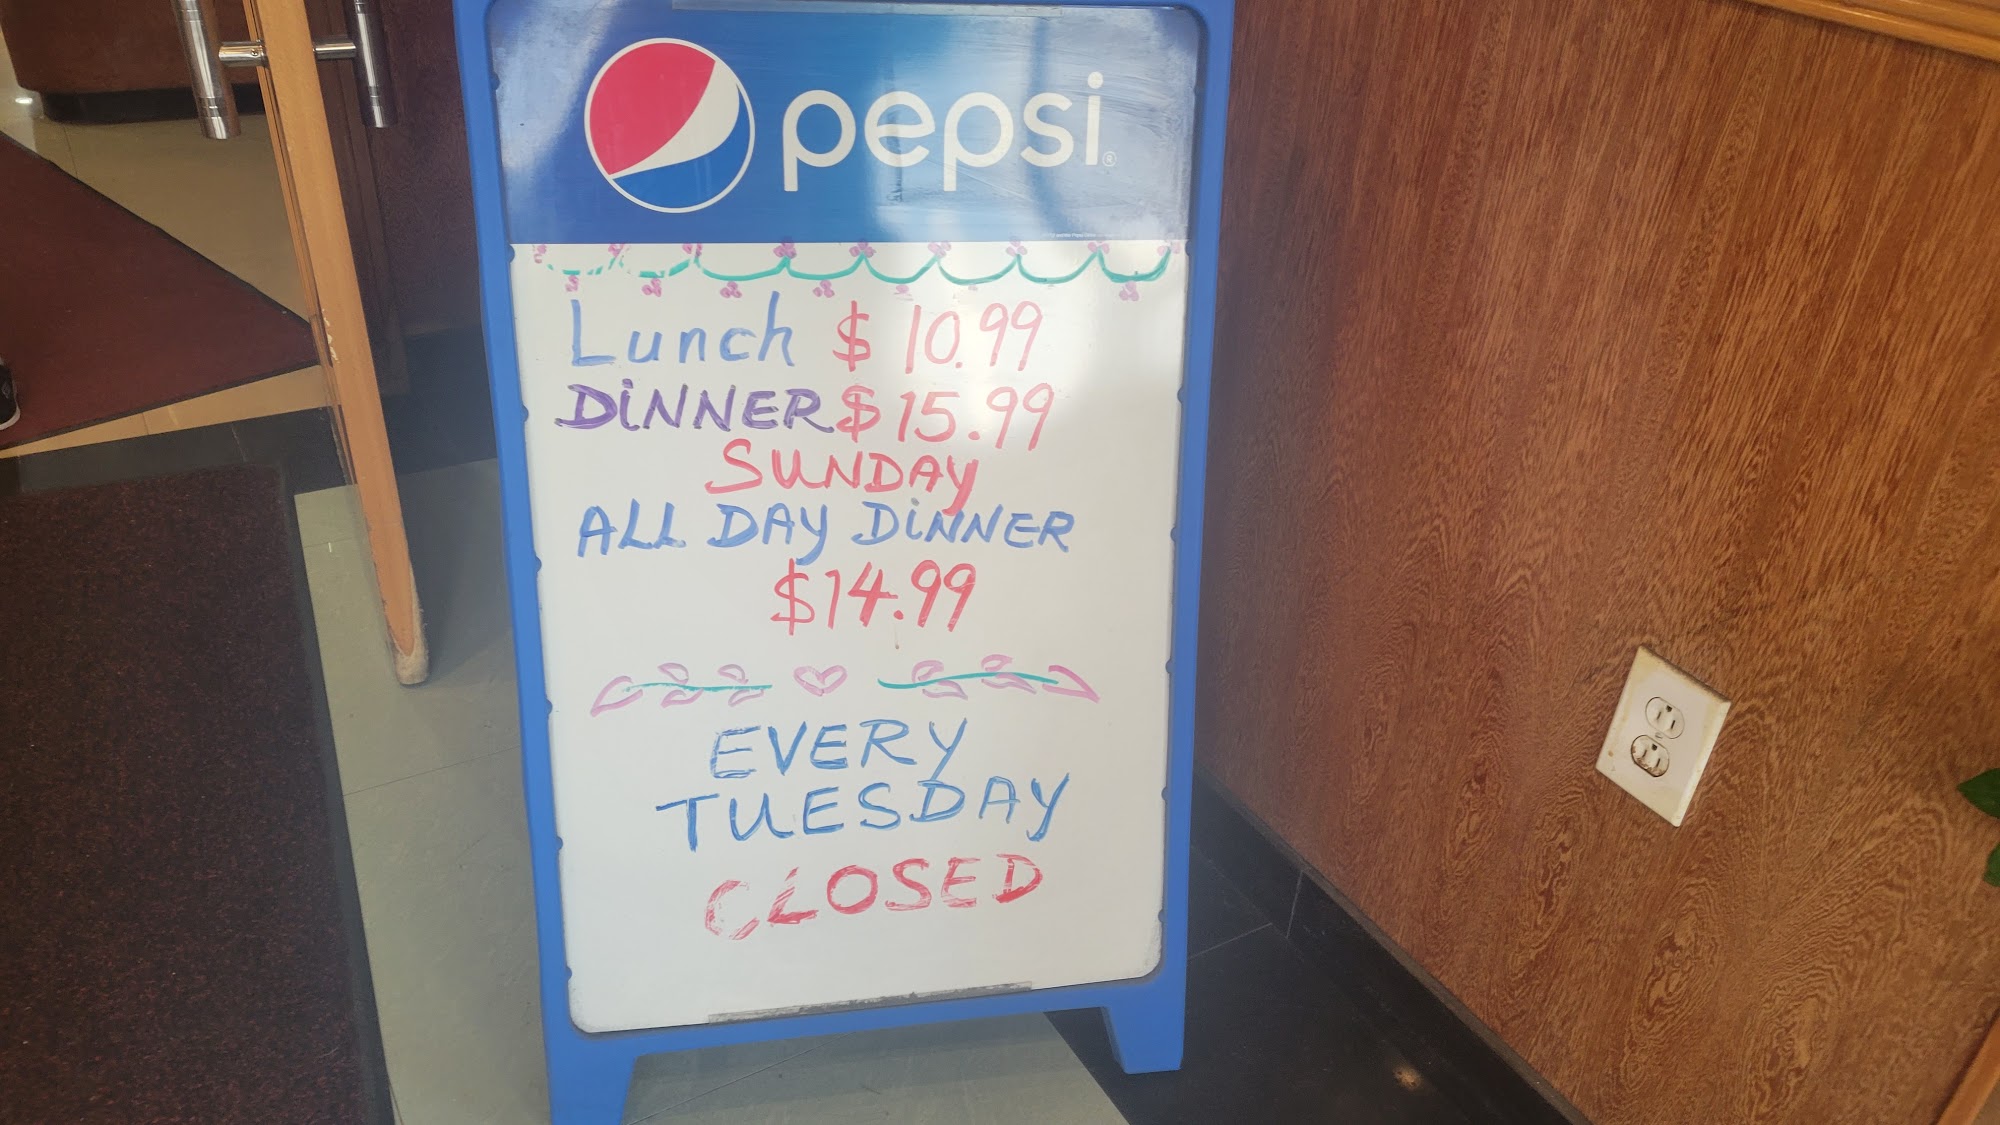 pepsi®
Lunch $ 10.99
DINNER $ 15.99
SUNDAY
ALL DAY DINNER
$14.99
EVERY
TUESDAY
CLOSED